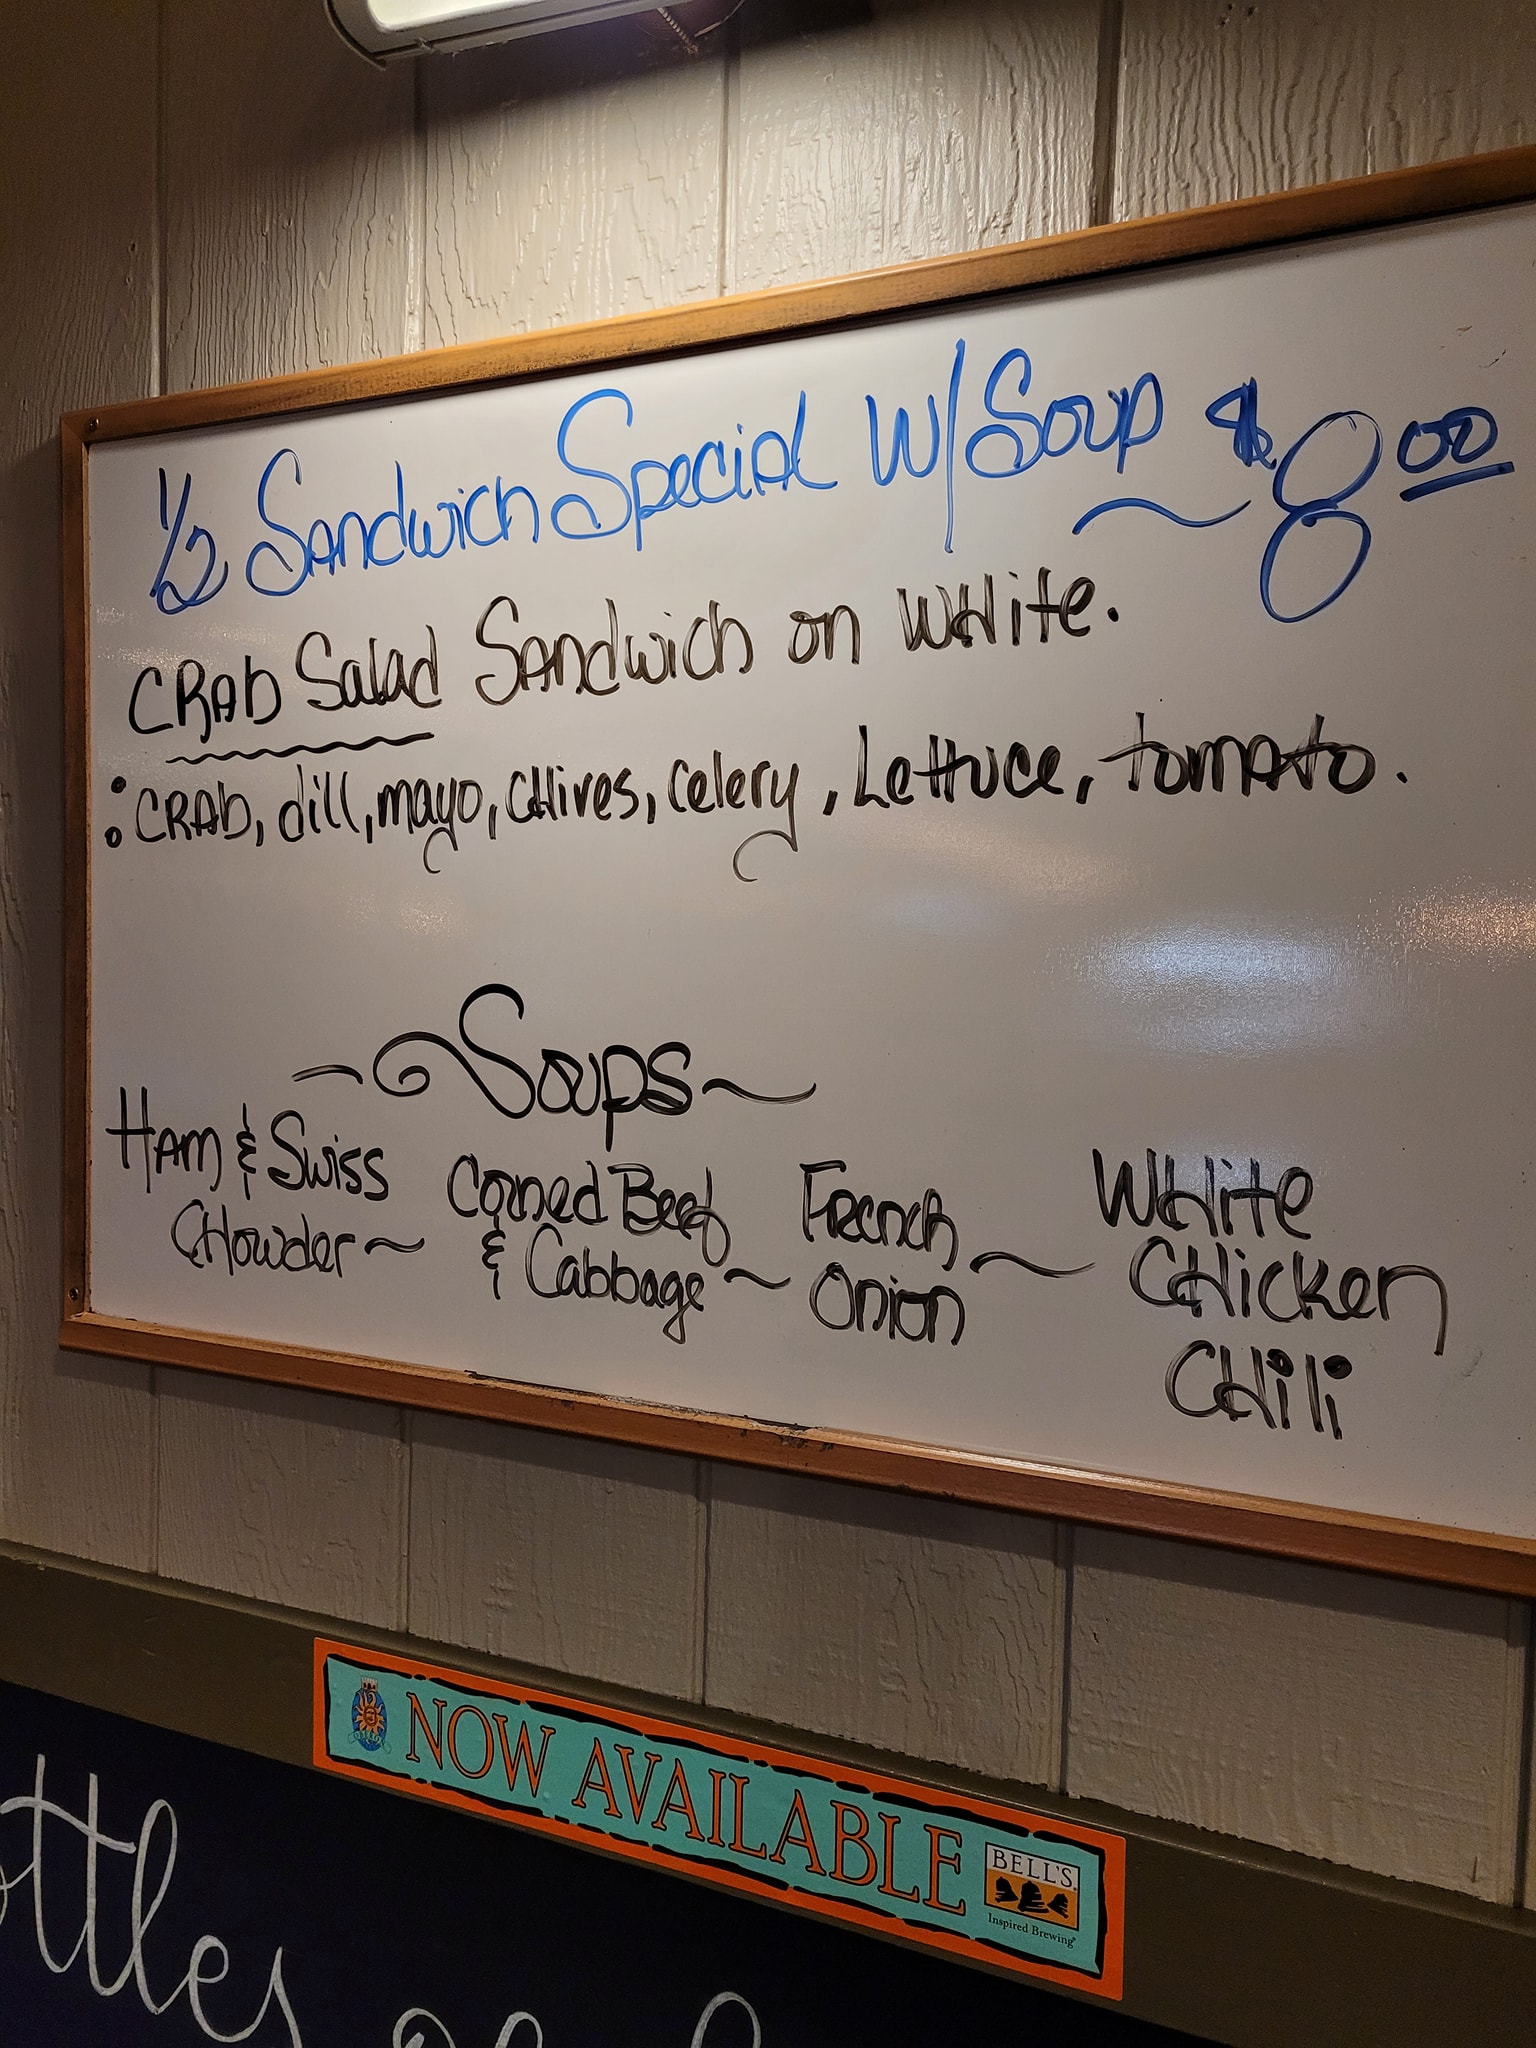 1/2 Sandwich Special W/Soup $8.00
CRAB Salad Sandwich on WHite.
: CRAB, dill, mayo, CHives, celery, Lettuce, tomato.
~ Soups ~
HAM & Swiss
CHowder ~
Corned Beef
& Cabbage ~
French
Onion ~
WHite
CHicken
CHili
NOW AVAILABLE
BELL'S
Inspired Brewing
ttles